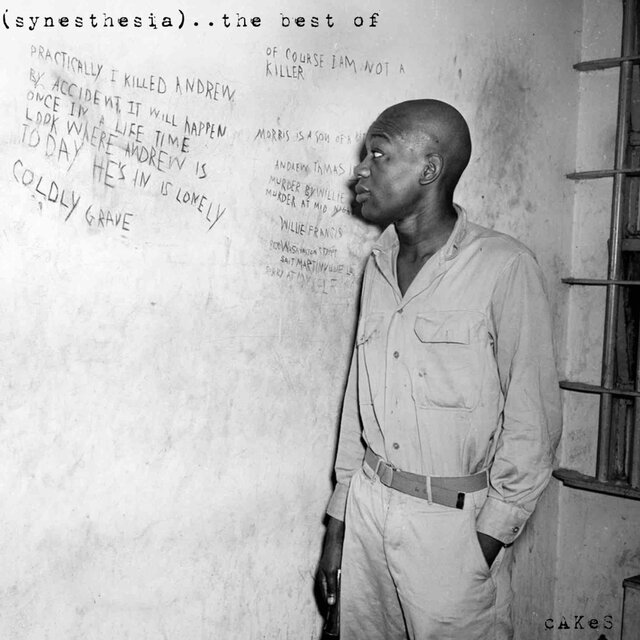 (synesthesia)..the best of
PRACTICALLY I KILLED ANDREW
BY ACCIDENT IT WILL HAPPEN
ONCE IN A LIFE TIME
LOOK WHERE ANDREW IS
TODAY HE'S IN IS LONELY
COLDLY GRAVE
OF COURSE I AM NOT A
KILLER
MORRIS IS A SON OF A
ANDREW TOMAS
MURDER BY WILLIE
MURDER AT MID
WILLIE FRANCIS
cAKeS